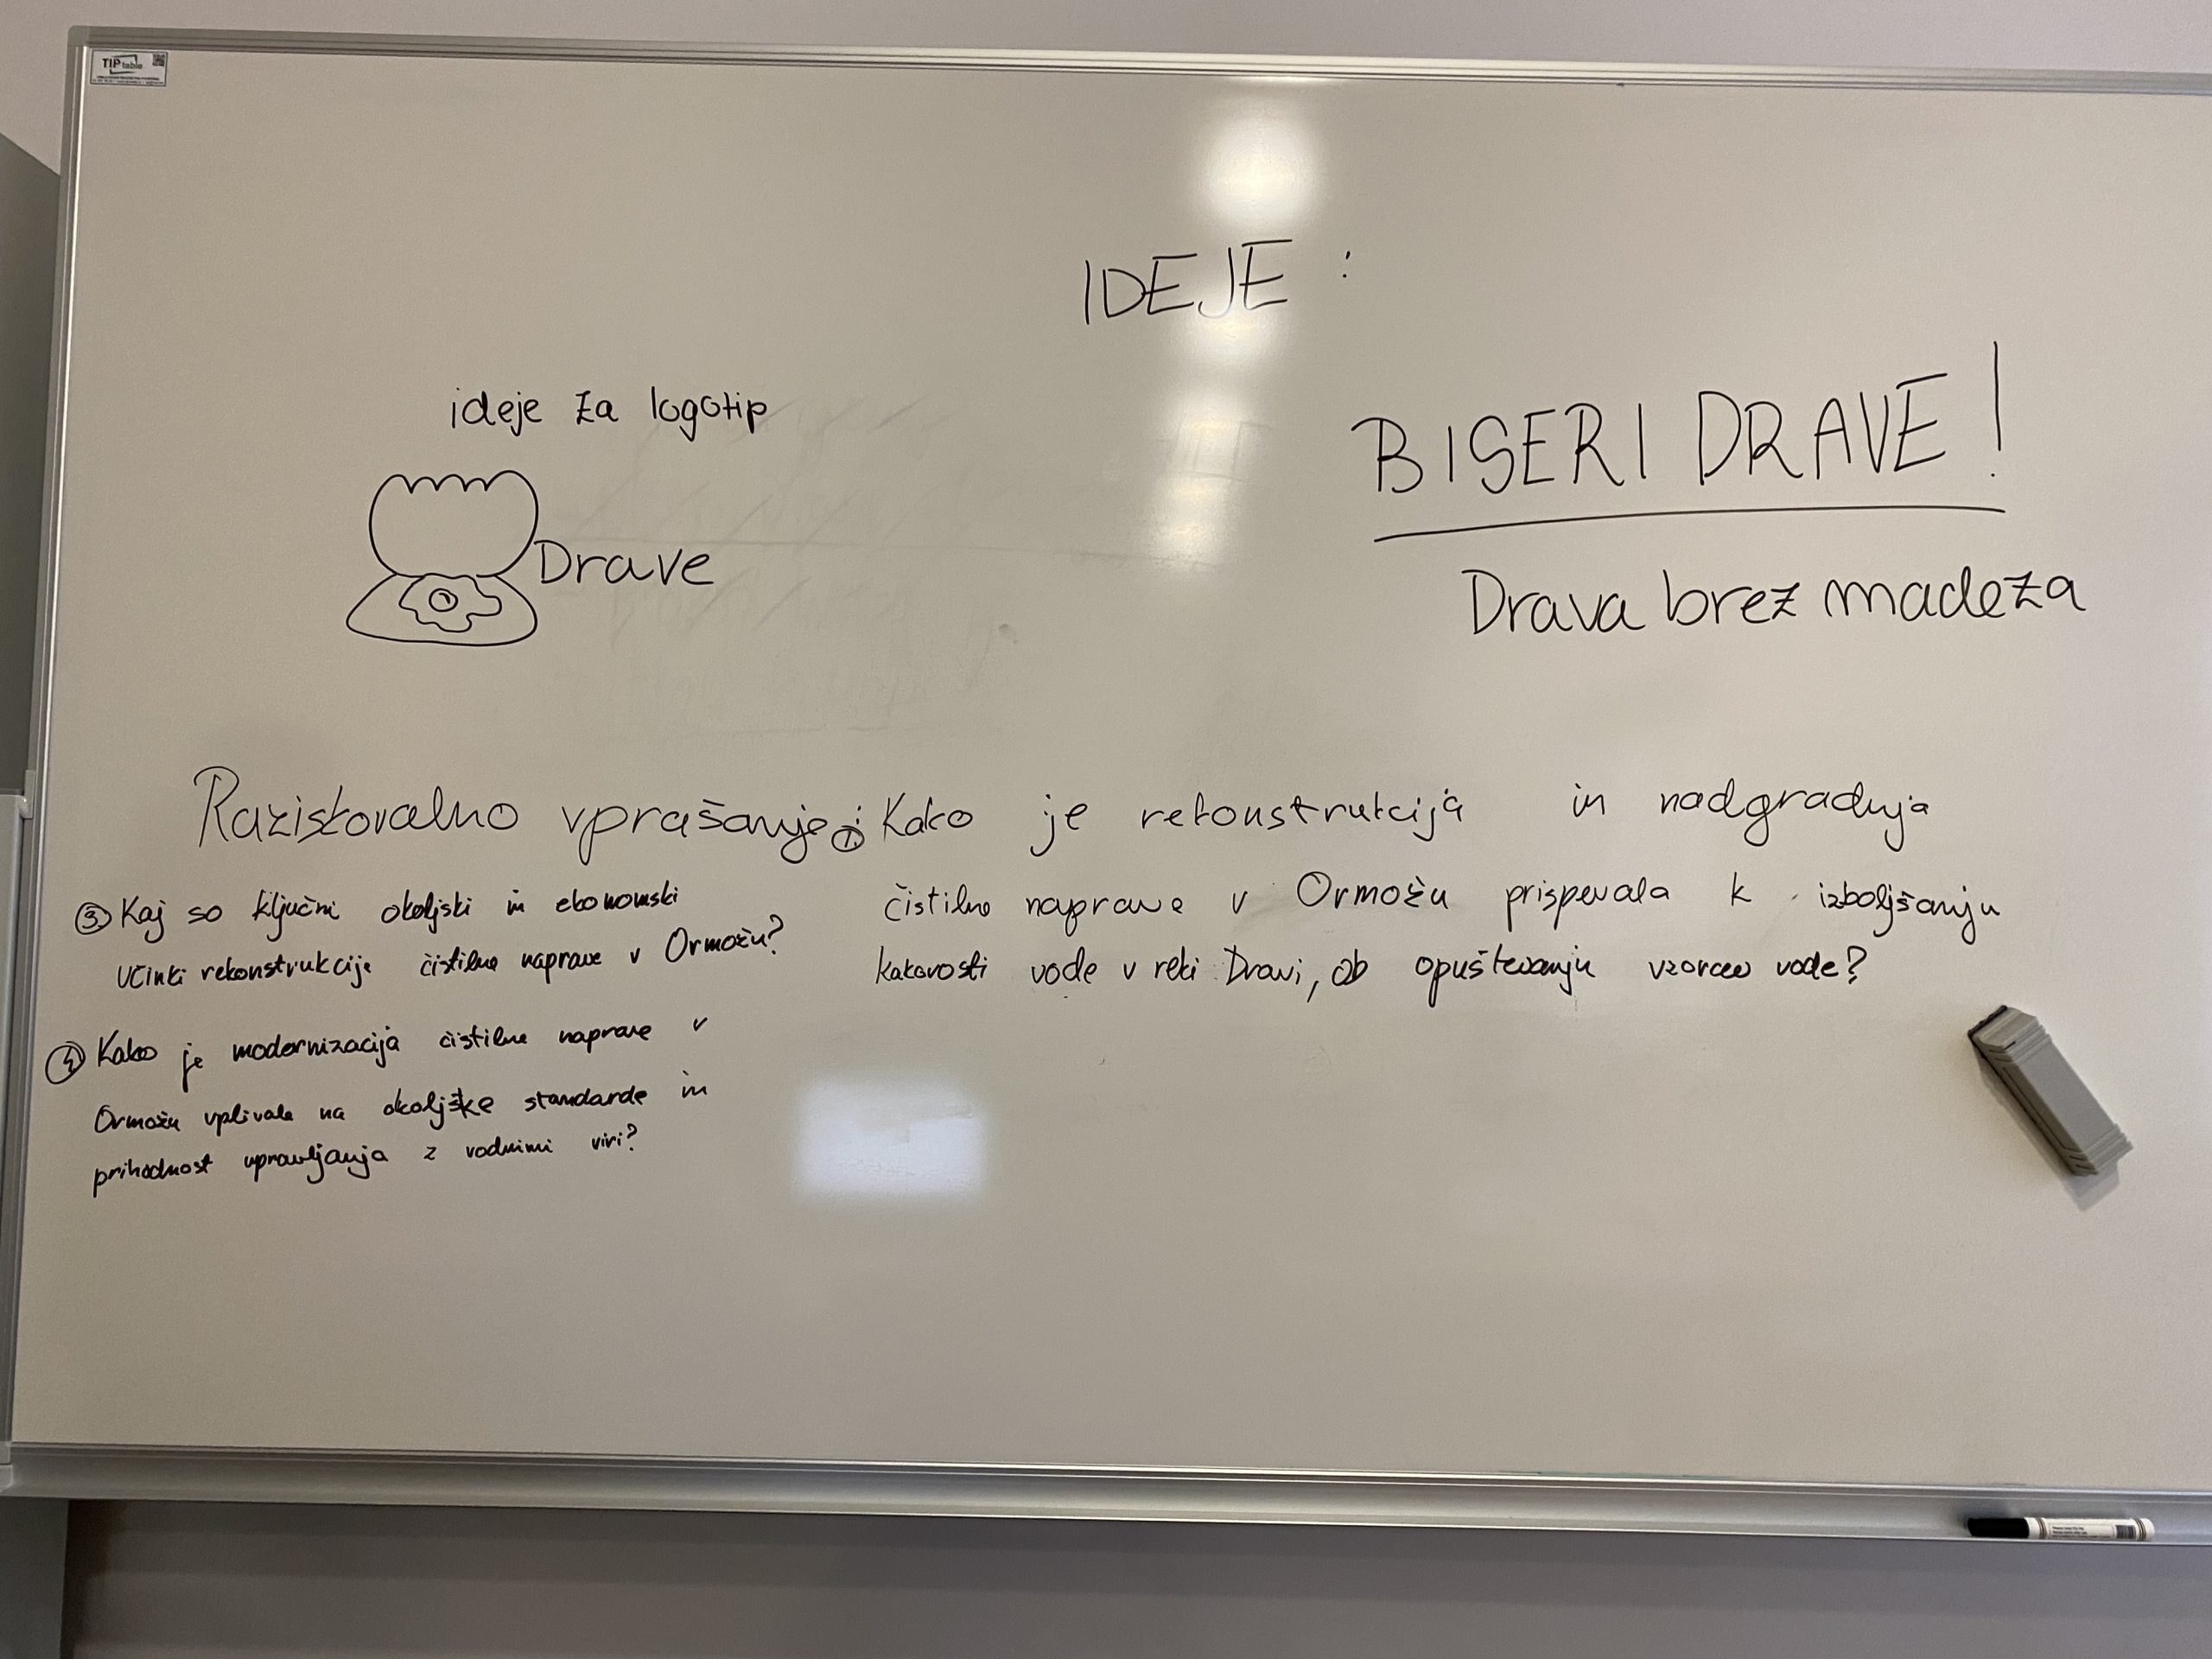 TIP table
IDEJE :
ideje za logotip
Drave
BISERI DRAVE!
Drava brez madeža
Raziskovalno vprašanje: ① Kako je rekonstrukcija in nadgradnja
čistilne naprave v Ormožu prispevala k izboljšanju
kakovosti vode v reki Dravi, ob opuštevanju vzorcev vode?
③ Kaj so ključni okoljski in ekonomski
učinki rekonstrukcije čistilne naprave v Ormožu?
④ Kako je modernizacija čistilne naprave v
Ormožu vplivala na okoljske standarde in
prihodnost upravljanja z vodnimi viri?